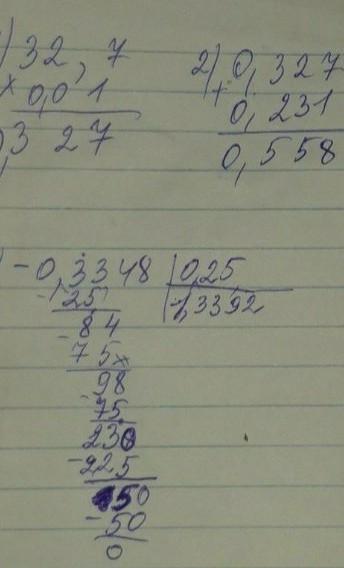 ) 32,7
× 0,01
0,327
2) 0,327
+ 0,231
0,558
) -0,3348 | 0,25
- 25 | -1,3392
84
- 75
98
- 75
230
- 225
50
- 50
0